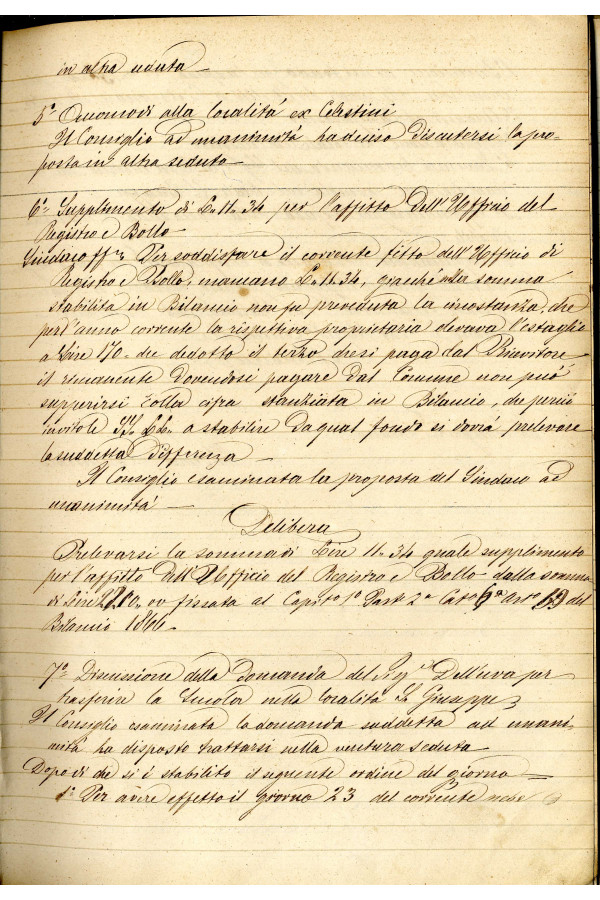 in altra seduta
5.° Accomodi alla località ex Celestini
Il Consiglio ad unanimità ha deciso discutersi la pro-
posta in altra seduta
6.° Supplimento di L. 11.34 per l'affitto dell'Ufficio del
Registro e Bollo
Sindaco ff.ne Per soddisfare il corrente fitto dell'Ufficio di
Registro e Bollo, mancano L. 11.34, giacché nella somma
stabilita in Bilancio non fu preveduta la circostanza, che
per l'anno corrente la rispettiva proprietaria elevava l'estaglio
a Lire 170. che dedotto il terzo che si paga dal Ricevitore
il rimanente dovendosi pagare dal Comune non può
supperirsi colla cifra stanziata in Bilancio, che perciò
invito le a stabilire da qual fondo si dovrà prelevare
la suddetta differenza
Il Consiglio esaminata la proposta del Sindaco ad
unanimità
Delibera
Prelevarsi la somma di Lire 11.34 quale supplimento
per l'affitto dell'Ufficio del Registro e Bollo dalla somma
di Lire fissata al Capito 1° Part 2a Cata del
Bilancio 1866
7.° Discussione della domanda del Sig.r Dell'uva per
trasferire la Scuola nella località S. Giuseppe
Il Consiglio esaminata la domanda suddetta ad unani-
mità ha disposto trattarsi nella ventura seduta
Dopo di che si è stabilito il seguente ordine del giorno
1.° Per avere effetto il giorno 23 del corrente mese